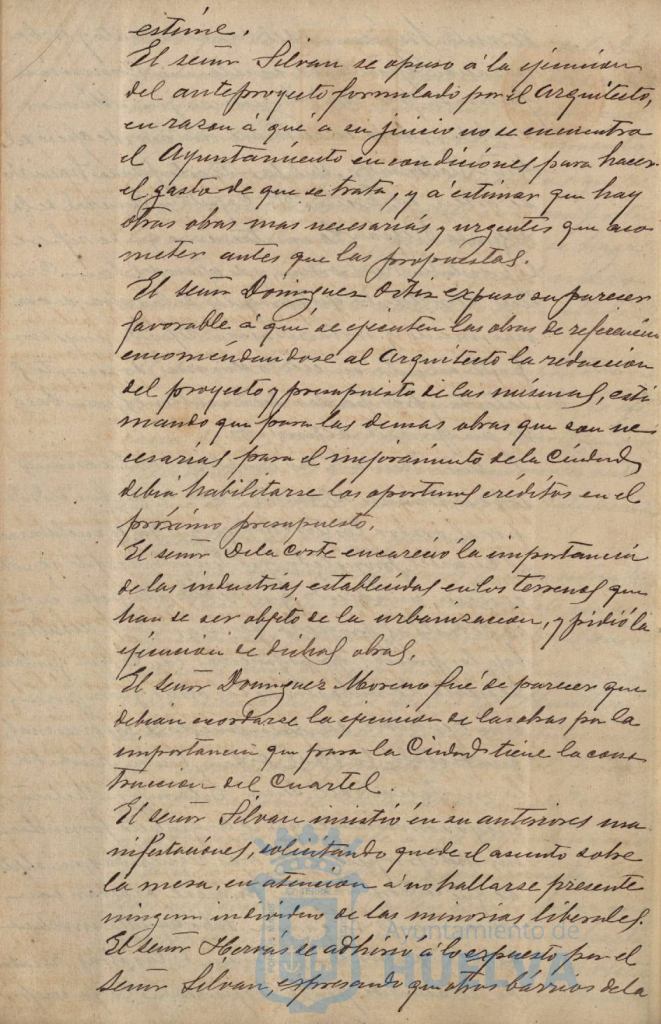 estime.
El señor Silvan se opuso á la ejecucion
del anteproyecto formulado por el Arquitecto,
en razon á qué a su juicio no se encuentra
el Ayuntamiento en condiciones para hacer
el gasto de que se trata, y á estimar que hay
otras obras mas necesarias y urgentes que aco
meter antes que las propuestas.
El señor Dominguez Ortiz expuso su parecer
favorable á qué se ejecuten las obras de referencia
encomendandose al Arquitecto la redaccion
del proyecto y presupuesto de las mismas, esti
mando que para las demas obras que son ne
cesarias para el mejoramiento de la Ciudad,
debia habilitarse los oportunos créditos en el
próximo presupuesto.
El señor De la Corte encareció la importancia
de las industrias establecidas en los terrenos que
han de ser objeto de la urbanización, y pidió la
ejecucion de dichas obras.
El señor Dominguez Moreno fué de parecer que
debian acordarse la ejecucion de las obras por la
importancia que para la Ciudad tiene la cons
truccion del Cuartel.
El señor Silvan insistió en su anteriores ma
nifestaciones, solicitando quede el asunto sobre
la mesa, en atencion á no hallarse presente
ningun individuo de las minorias liberales.
El señor Hervás se adhirió á lo expuesto por el
señor Silvan, expresando que otros bárrios de la
Ayuntamiento de
HUELVA